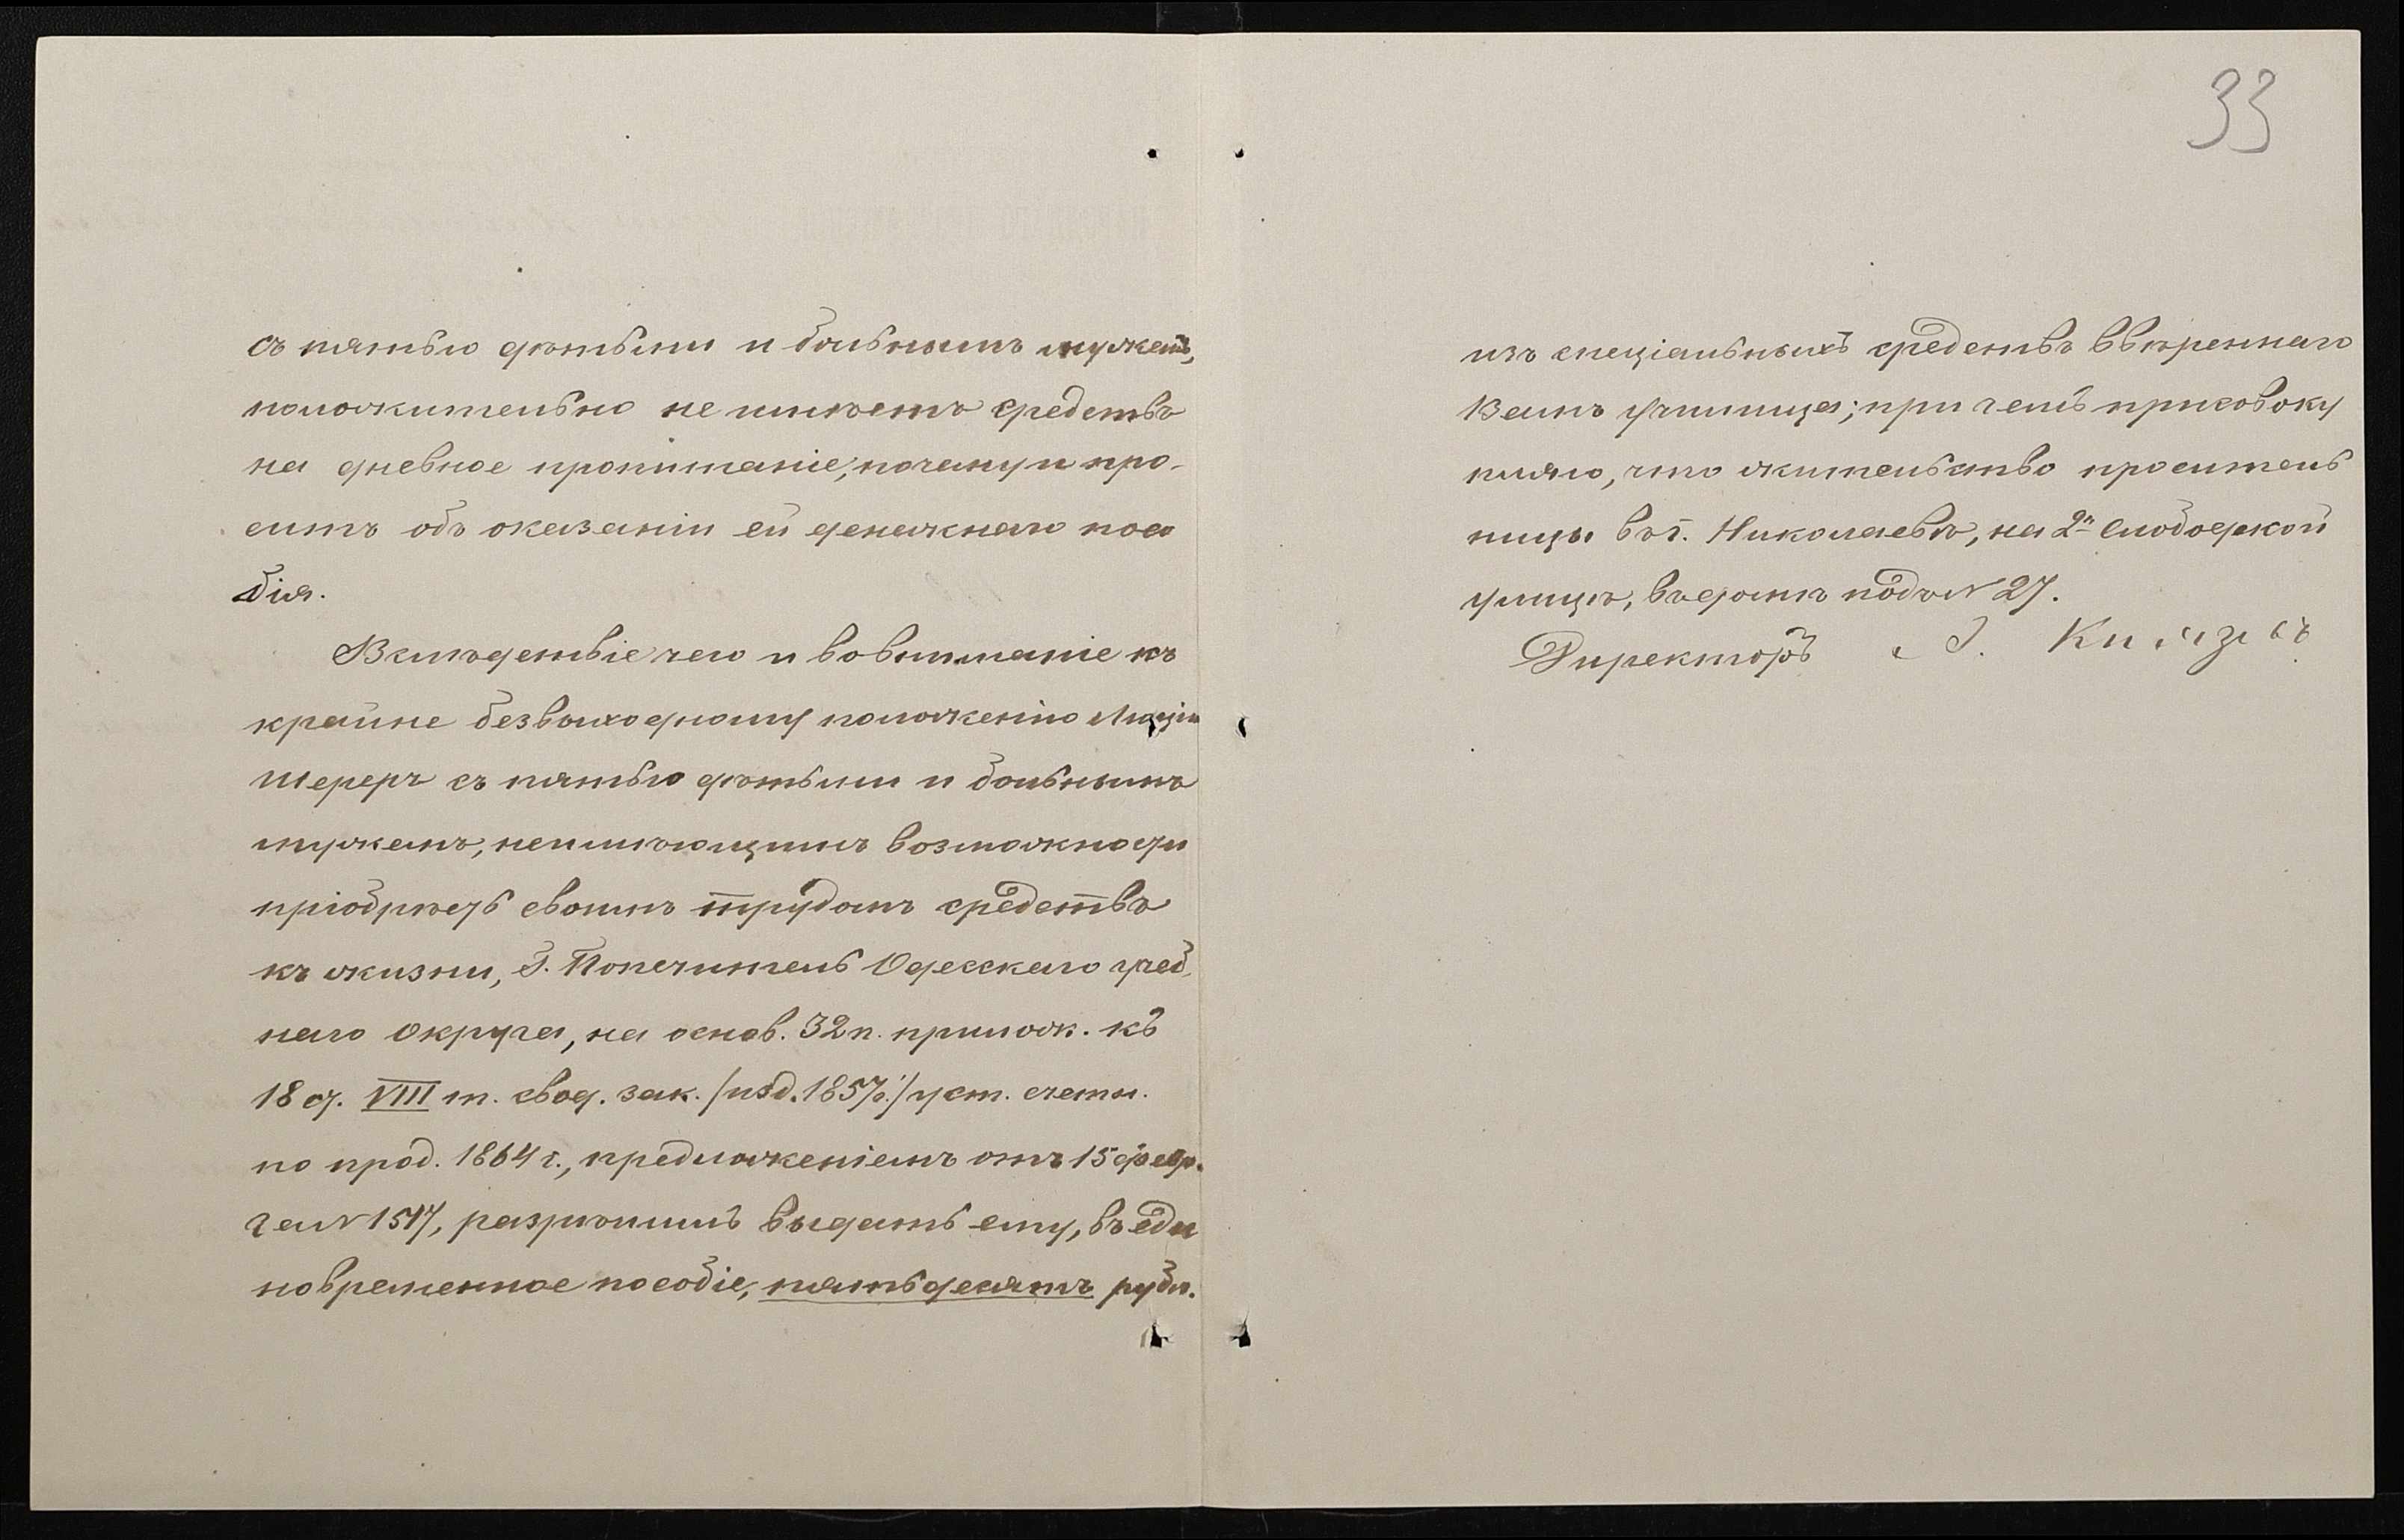 съ пятью дѣтьми и больнымъ мужемъ,
положительно не имѣетъ средствъ
на дневное пропитаніе, почему и про-
ситъ объ оказаніи ей денежнаго посо
бія.
Вслѣдствіе чего и во вниманіе къ
крайне безвыходному положенію
Шереръ съ пятью дѣтьми и больнымъ
мужемъ, неимѣющимъ возможности
пріобрѣсть своимъ трудомъ средствъ
къ жизни, Г. Попечитель Одесскаго учеб
наго Округа, на основ. 32 п. прилож. къ
18 ст. VIII т. свод. зак. /изд. 1857г./ уст. счетн.
по прод. 1864 г., предложеніемъ отъ 15 февр.
за № 1517, разрѣшилъ выдать ему, въ еди
новременное пособіе, пятьдесятъ рубл.
33
изъ спеціальныхъ средствъ ввѣреннаго
Вамъ училища; при чемъ присовоку
пляю, что жительство проситель
ницы въ г. Николаевѣ, на 2й Слободской
улицѣ, въ домѣ подъ № 27.
Директоръ